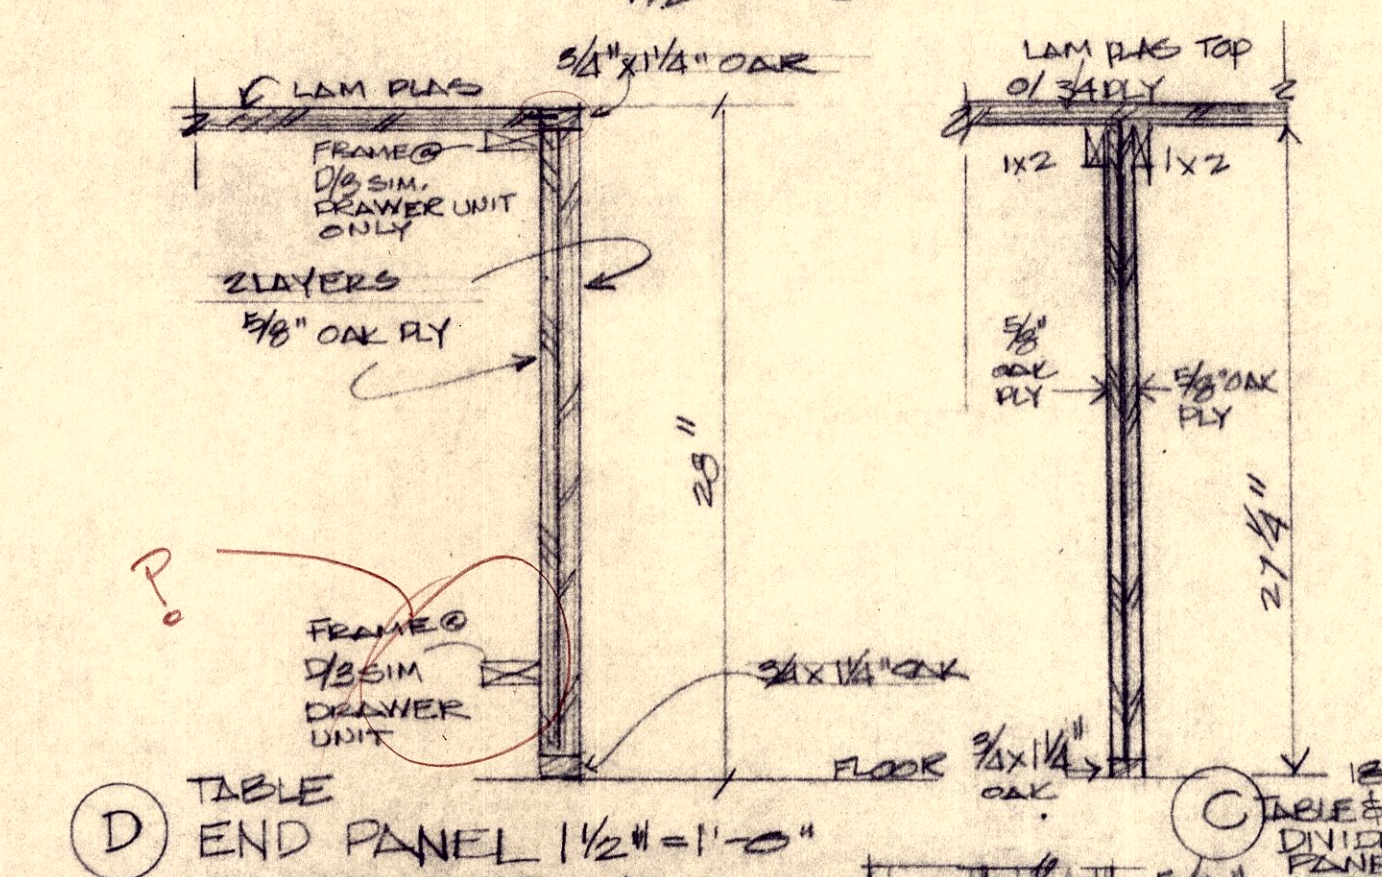 3/4" x 1 1/4" OAK
LAM PLAS
FRAME @
D/3 SIM.
DRAWER UNIT
ONLY
2 LAYERS
5/8" OAK PLY
28"
?
FRAME @
D/3 SIM
DRAWER
UNIT
3/4 x 1 1/4" OAK
FLOOR
D
TABLE
END PANEL 1 1/2" = 1'-0"
LAM PLAS TOP
O/ 3/4 PLY
1x2
1x2
5/8"
OAK
PLY
5/8" OAK
PLY
27 1/4"
3/4 x 1 1/4"
OAK
C
TABLE &
DIVID
PANE